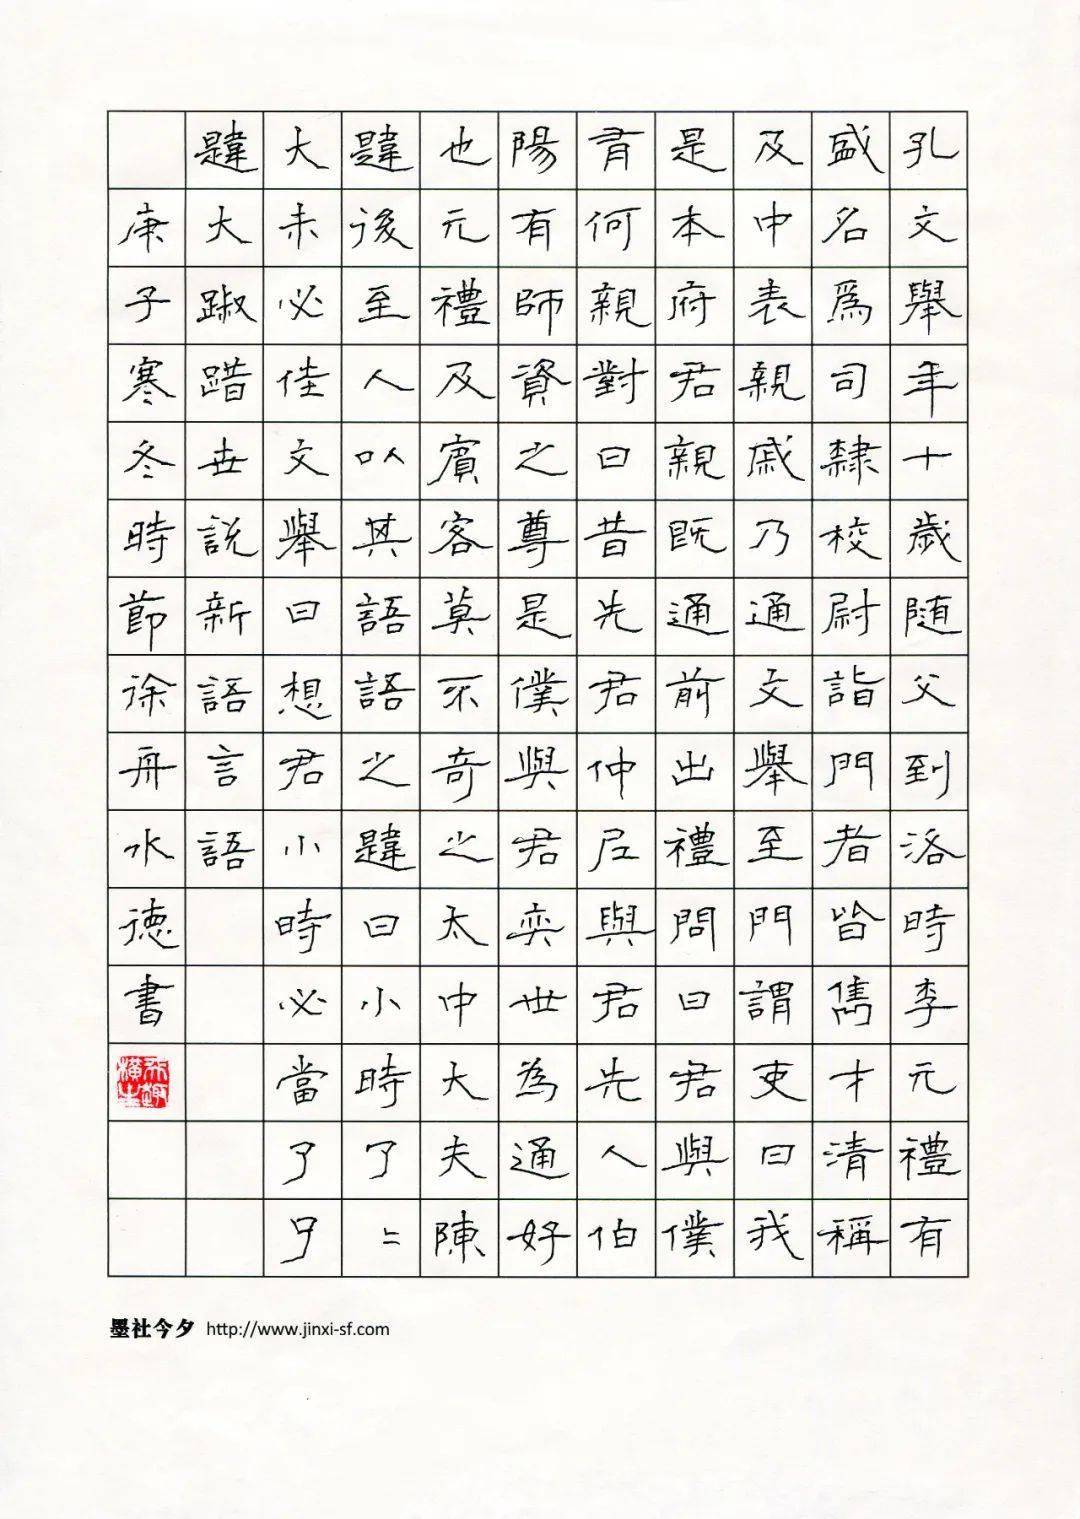 孔文舉年十歲随父到洛時李元禮有
盛名爲司隸校尉詣門者皆雋才清稱
及中表親戚乃通文舉至門謂吏曰我
是李府君親既通前出禮問曰君與僕
有何親對曰昔先君仲尼與君先人伯
陽有師資之尊是僕與君奕世為通好
也元禮及賓客莫不奇之太中大夫陳
韙後至人以其語語之韙曰小時了〻
大未必佳文舉曰想君小時必當了了
韙大踧踖世説新語言語
庚子寒冬時節徐舟水德書
墨社今夕 http://www.jinxi-sf.com